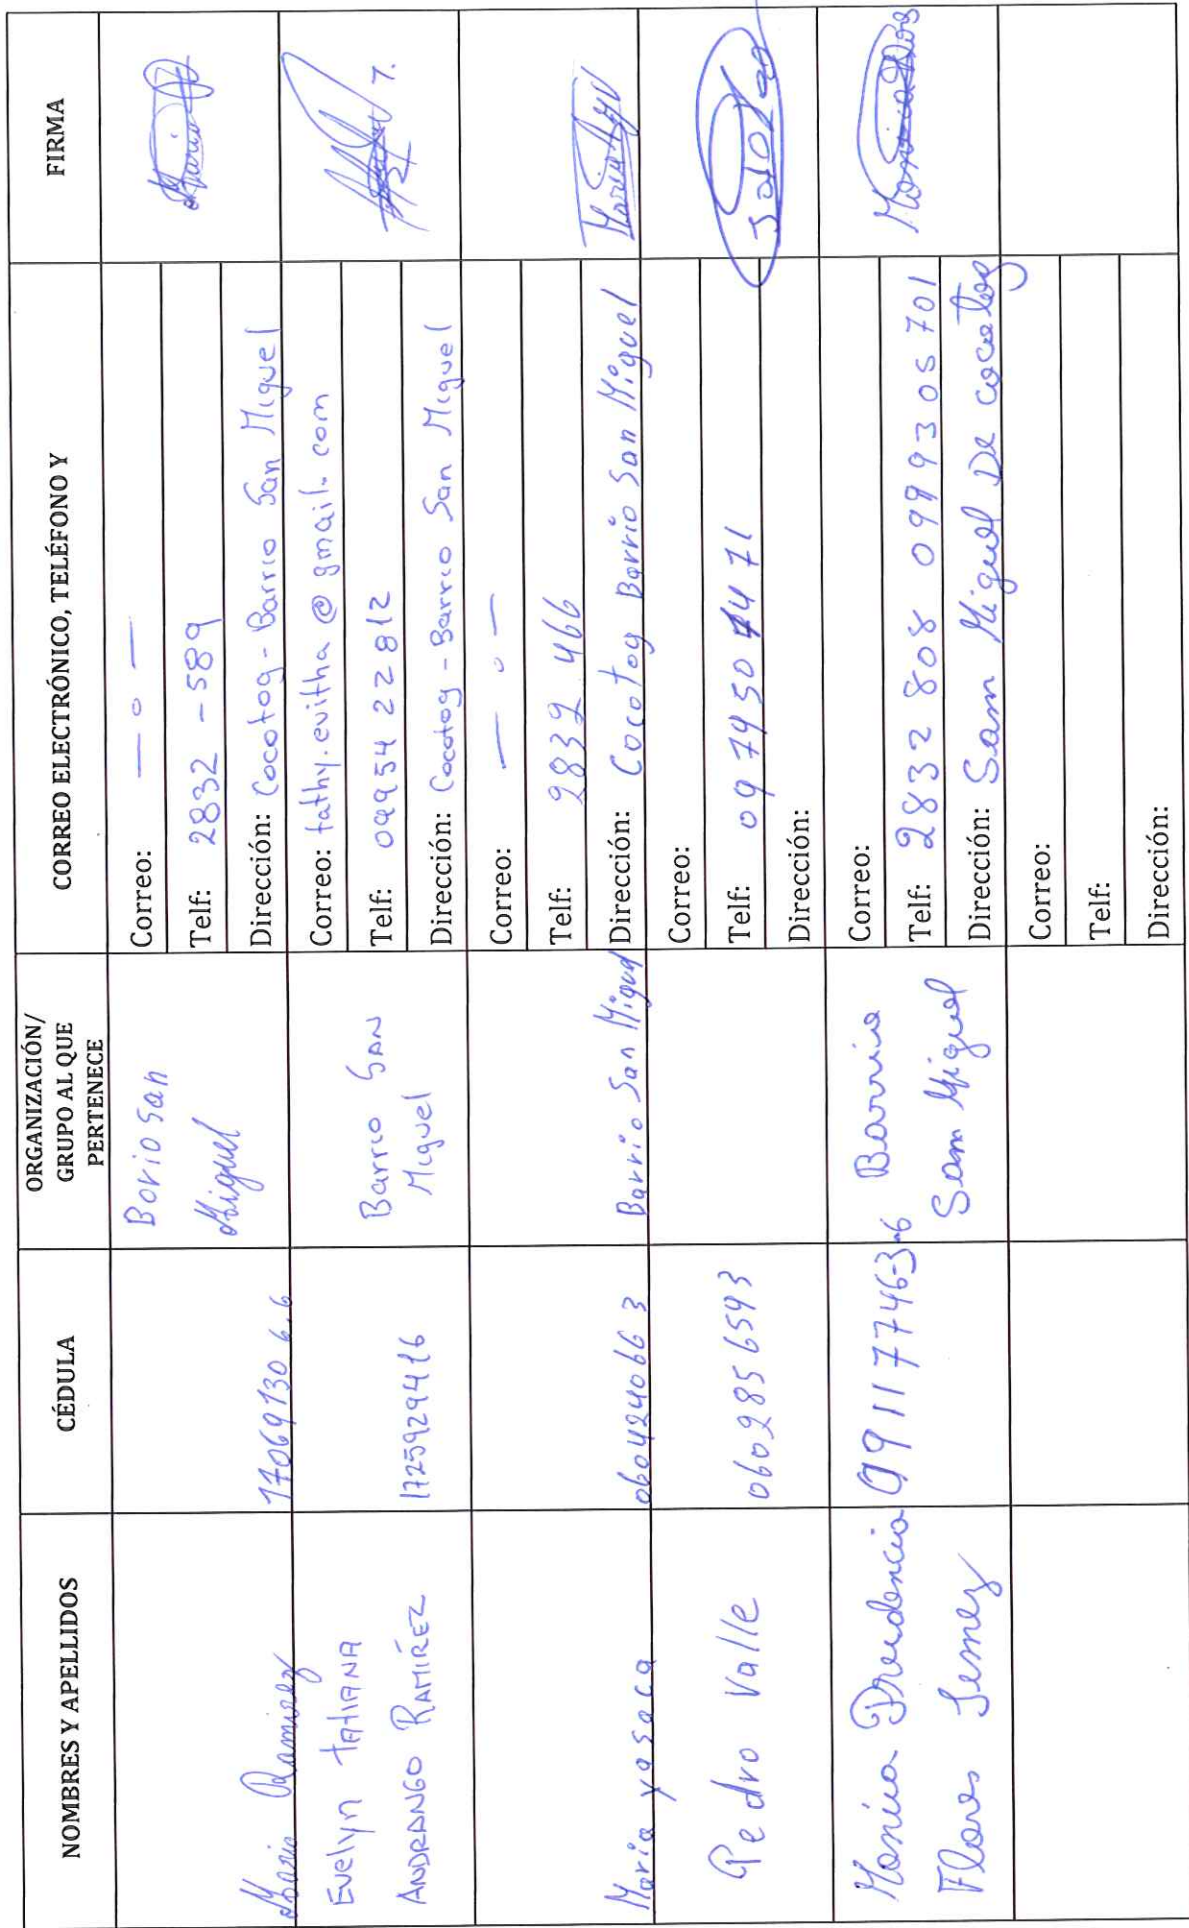 NOMBRES Y APELLIDOS
CÉDULA
ORGANIZACIÓN/
GRUPO AL QUE
PERTENECE
CORREO ELECTRÓNICO, TELÉFONO Y
FIRMA
Ramirez
17069130 6.6
Borio San
Miguel
Correo: — o —
Telf: 2832 - 589
Dirección: Cocotog - Barrio San Miguel
Evelyn TATIANA
ANDRANGO RAMÍREZ
1725929416
Barrio SAN
Miguel
Correo: tathy.evitha @ gmail. com
Telf: 0995422812
Dirección: Cocotog - Barrio San Miguel
Maria yasaca
060424066 3
Barrio San Miguel
Correo: — o —
Telf: 2832 466
Dirección: Cocotog Barrio San Miguel
Pedro Valle
0602856593
Correo:
Telf:
Dirección:
Monica Prudencia
Flores
091177463-6
Barrio
Sam Miguel
Correo:
Telf: 2832808 0999305701
Dirección: Sam Miguel De cocotog
Correo:
Telf:
Dirección: